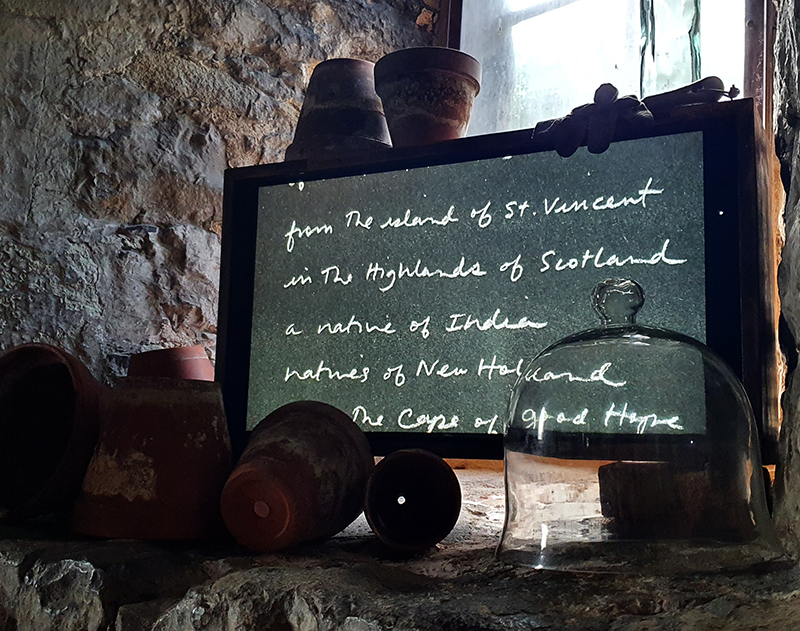 from The island of St. Vincent
in The Highlands of Scotland
a native of India
natives of New Holland
The Cape of Good Hope